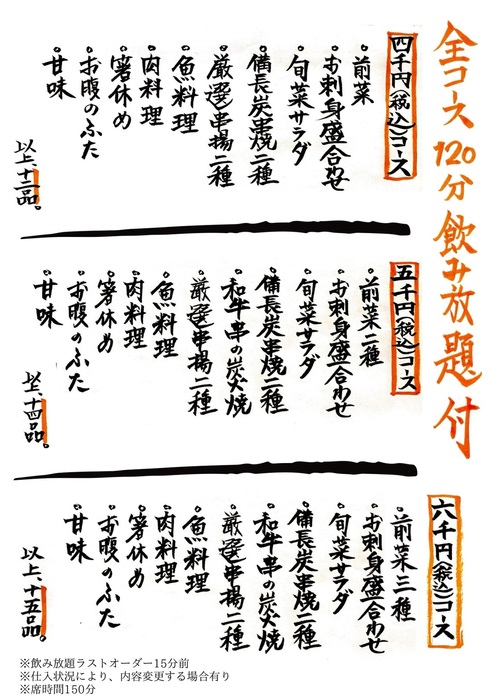 全コース120分飲み放題付
四千円(税込)コース
。前菜
。お刺身盛合わせ
。旬菜サラダ
。備長炭串焼二種
。厳選串揚二種
。魚料理
。肉料理
。箸休め
。お腹のふた
。甘味
以上、十二品。
五千円(税込)コース
。前菜二種
。お刺身盛合わせ
。旬菜サラダ
。備長炭串焼二種
。和牛串の炭火焼
。厳選串揚二種
。魚料理
。肉料理
。箸休め
。お腹のふた
。甘味
以上、十四品。
六千円(税込)コース
。前菜三種
。お刺身盛合わせ
。旬菜サラダ
。備長炭串焼二種
。和牛串の炭火焼
。厳選串揚二種
。魚料理
。肉料理
。箸休め
。お腹のふた
。甘味
以上、十五品。
※飲み放題ラストオーダー15分前
※仕入状況により、内容変更する場合有り
※席時間150分